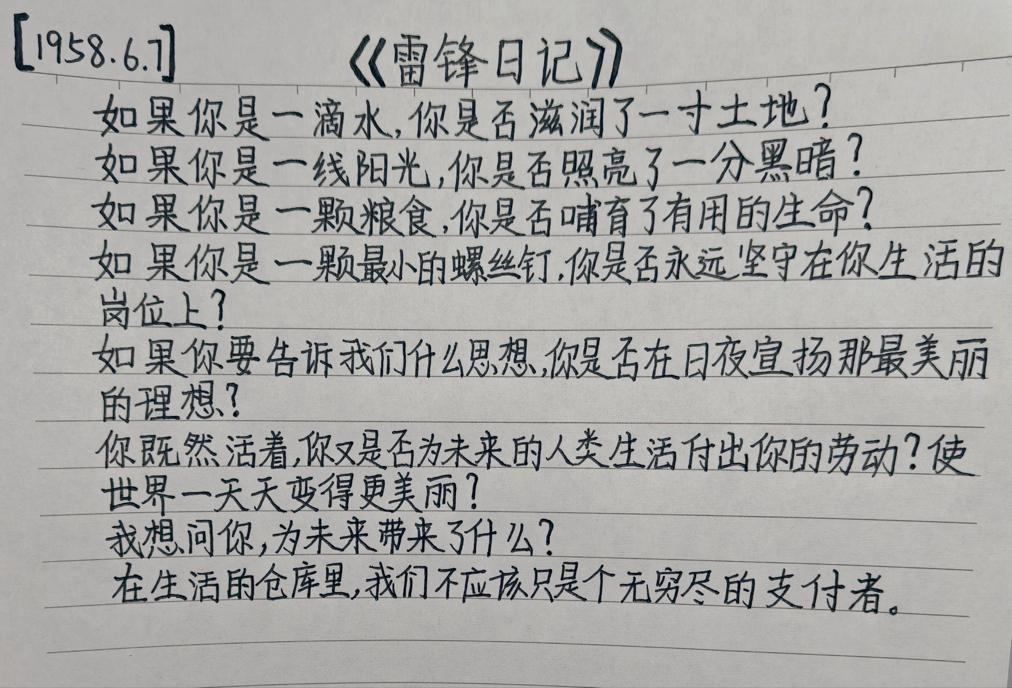 [1958.6.7] 《雷锋日记》
如果你是一滴水,你是否滋润了一寸土地?
如果你是一线阳光,你是否照亮了一分黑暗?
如果你是一颗粮食,你是否哺育了有用的生命?
如果你是一颗最小的螺丝钉,你是否永远坚守在你生活的
岗位上?
如果你要告诉我们什么思想,你是否在日夜宣扬那最美丽
的理想?
你既然活着,你又是否为未来的人类生活付出你的劳动?使
世界一天天变得更美丽?
我想问你,为未来带来了什么?
在生活的仓库里,我们不应该只是个无穷尽的支付者。